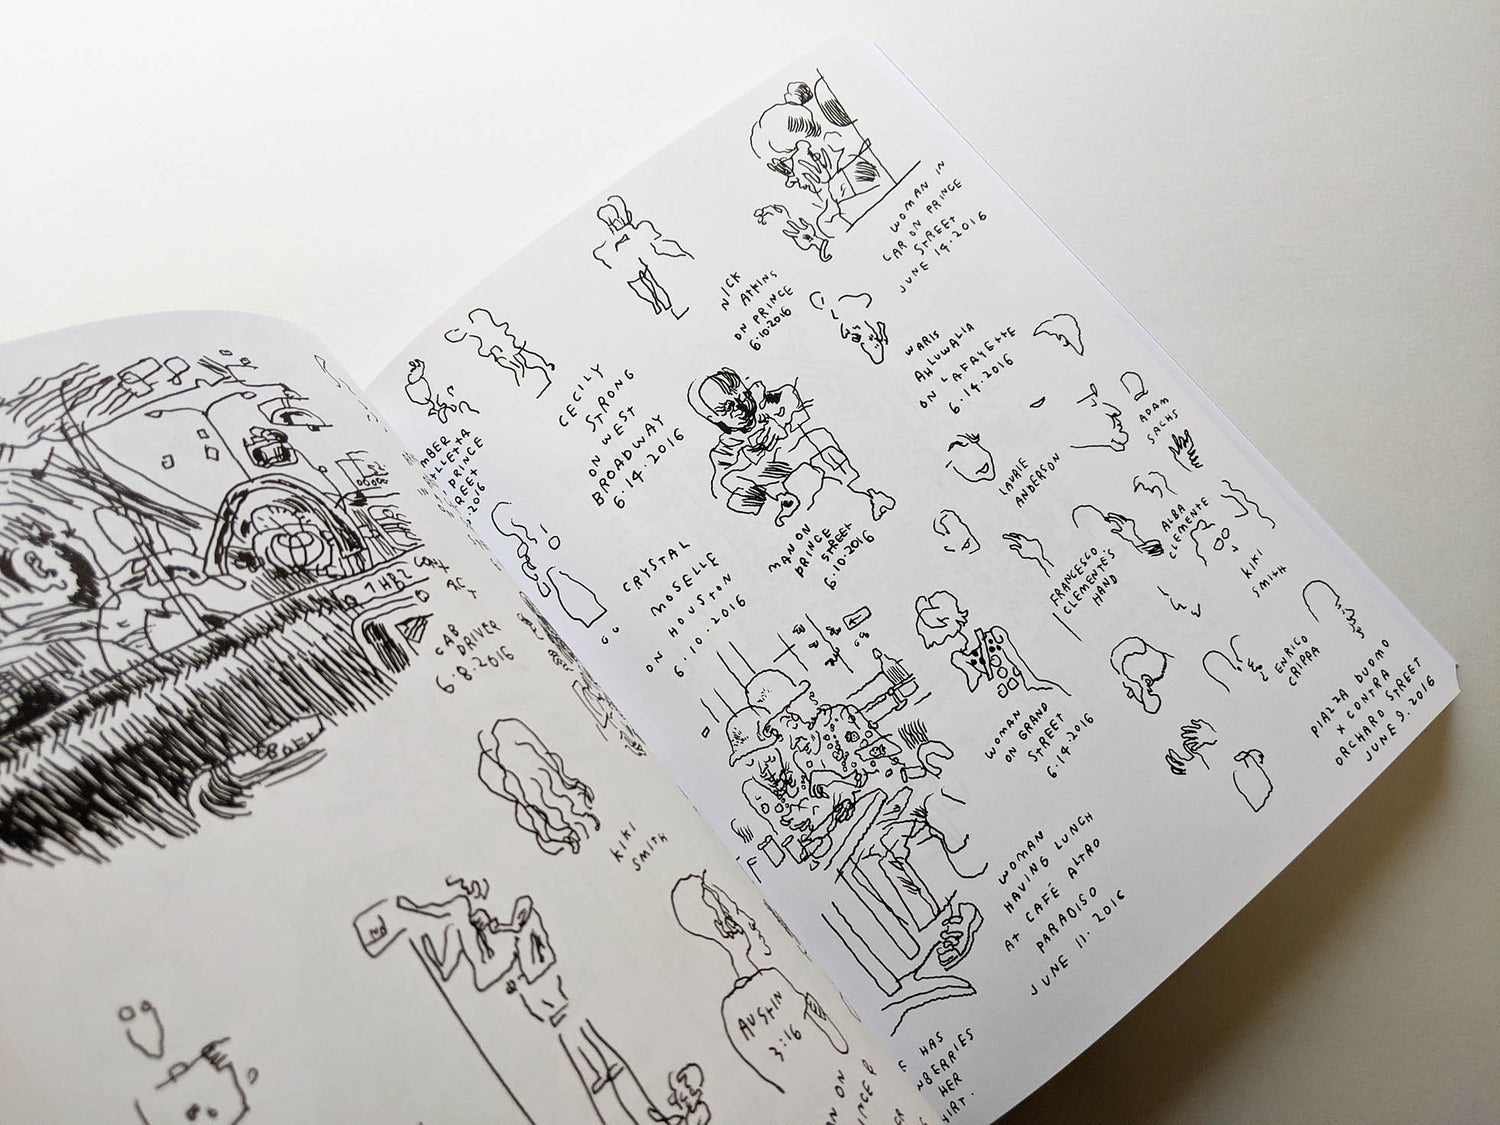 CAB
DRIVER
6.8.2016
KIKI
SMITH
AUSTIN
3:16
PRINCE
CECILY
STRONG
ON
WEST
BROADWAY
6.14.2016
NICK
ATKINS
ON PRINCE
6.10.2016
WOMAN IN
CAR ON PRINCE
STREET
JUNE 14.2016
WARIS
AHLUWALIA
ON LAFAYETTE
6.14.2016
CRYSTAL
MOSELLE
ON HOUSTON
6.10.2016
MAN ON
PRINCE
STREET
6.10.2016
LAURIE
ANDERSON
ADAM
SACHS
FRANCESCO
CLEMENTE'S
HAND
ALBA
CLEMENTE
+ KIKI
SMITH
ENRICO
CRIPPA
PIAZZA DUOMO
X CONTRA
ORCHARD STREET
JUNE 9. 2016
WOMAN
ON GRAND
STREET
6.14.2016
WOMAN
HAVING LUNCH
AT CAFÉ ALTRO
PARADISO
JUNE 11. 2016
HAS
HER